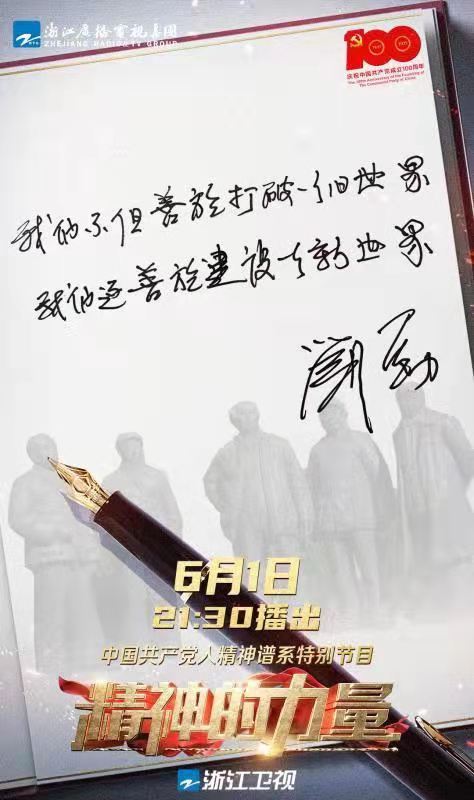 浙江廣播電視集團
ZHEJIANG RADIO&TV GROUP
100
1921
2021
庆祝中国共产党成立100周年
The 100th Anniversary of the Founding of
The Communist Party of China
我们不但善于打破一个旧世界
我们还善于建设一个新世界
6月1日
21:30播出
中国共产党人精神谱系特别节目
精神的力量
浙江卫视